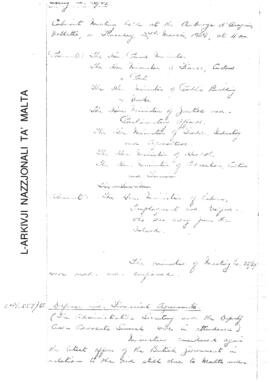 Cabinet Meeting held at the Auberge d'Aragon,
Valletta, on Thursday, March, at
Present: The Hon. Prime Minister
The Hon. Minister of Finance, Customs
and Port
The Hon. Minister of Public Building
and Works
The Hon. Minister of Justice and
Parliamentary Affairs
The Hon. Minister of Trade, Industry
and Agriculture
The Hon. Minister of Health
The Hon. Minister of Education, Culture
and Tourism
Absent: The Hon. Minister of Labour,
Employment and Welfare
who was away from the
Island.
The minutes of Meeting No.
were read and confirmed.
Defence and Financial Agreements
(The Administrative Secretary and the Deputy
Crown Advocate General were in attendance)
Ministers considered again
the latest offer of the British Government in
relation to the still due to Malta under
L-ARKIVJI NAZZJONALI TA' MALTA